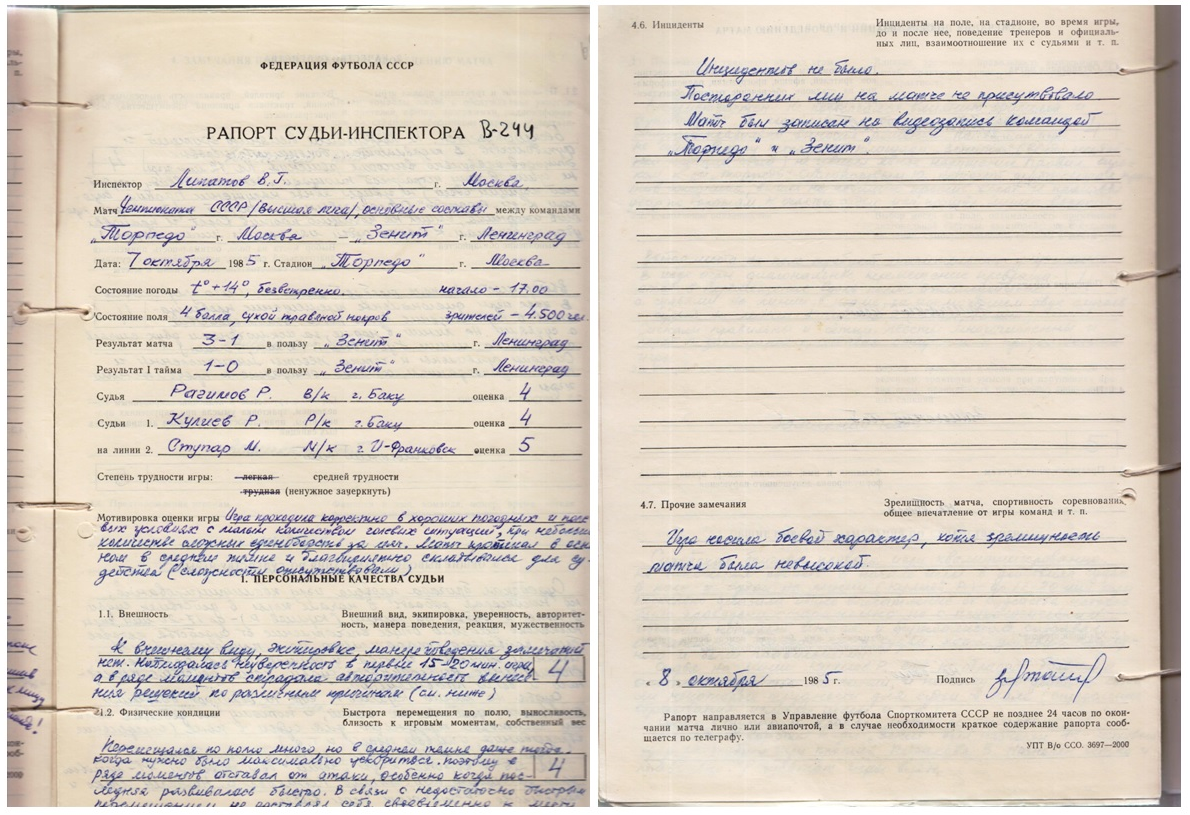 ФЕДЕРАЦИЯ ФУТБОЛА СССР
РАПОРТ СУДЬИ-ИНСПЕКТОРА В-244
Инспектор Липатов В.Г. г. Москва
Матч Чемпионата СССР /высшая лига/, основные составы между командами
„Торпедо" г. Москва — „Зенит" г. Ленинград
Дата: 7 октября 1985 г. Стадион „Торпедо" г. Москва
Состояние погоды t° +14°, безветренно. начало – 17.00
Состояние поля 4 балла, сухой травяной покров зрителей – 4.500 чел
Результат матча 3-1 в пользу „Зенит" г. Ленинград
Результат I тайма 1-0 в пользу „Зенит" г. Ленинград
Судья Рагимов Р. В/к г. Баку оценка 4
Судьи 1. Кулиев Р. Р/к г. Баку оценка 4
на линии 2. Ступар М. N/к г. И-Франковск оценка 5
Степень трудности игры: легкая средней трудности
трудная (ненужное зачеркнуть)
Мотивировка оценки игры Игра проходила корректно в хороших погодных и поле
вых условиях с малым количеством голевых ситуаций, при небольшом
количестве сложных единоборств за мяч. Матч протекал в осн
ном в среднем темпе и благоприятно складывался для су-
действа (сложности отсутствовали)
1. ПЕРСОНАЛЬНЫЕ КАЧЕСТВА СУДЬИ
1.1. Внешность Внешний вид, экипировка, уверенность, авторитет-
ность, манера поведения, реакция, мужественность
К внешнему виду, экипировке, манере поведения замечаний
нет. Наблюдалась неуверенность в первые 15-20 мин. игры,
а в ряде моментов страдала авторитетность вынесе-
ния решений по различным причинам (см. ниже)
4
1.2. Физические кондиции Быстрота перемещения по полю, выносливость,
близость к игровым моментам, собственный вес
Перемещался по полю много, но в среднем темпе даже тогда,
когда нужно было максимально ускориться. поэтому в
ряде моментов отставал от атаки, особенно когда пос-
ледняя развивалась быстро. В связи с недостаточно быстрым
перемещением не
4
4.6. Инциденты Инциденты на поле, на стадионе, во время игры,
до и после нее, поведение тренеров и официаль-
ных лиц, взаимоотношение их с судьями и т. п.
Инцидентов не было.
Посторонних лиц на матче не присутвовало
Матч был записан на видеозапись командой
„Торпедо" и „Зенит".
4.7. Прочие замечания Зрелищность матча, спортивность соревнования,
общее впечатление от игры команд и т. п.
Игра носила боевой характер, хотя зрелищность
матча была невысокой.
„8" октября 1985 г. Подпись
Рапорт направляется в Управление футбола Спорткомитета СССР не позднее 24 часов по окон-
чании матча лично или авиапочтой, а в случае необходимости краткое содержание рапорта сооб-
щается по телеграфу.
УПТ В/о ССО. 3697—2000